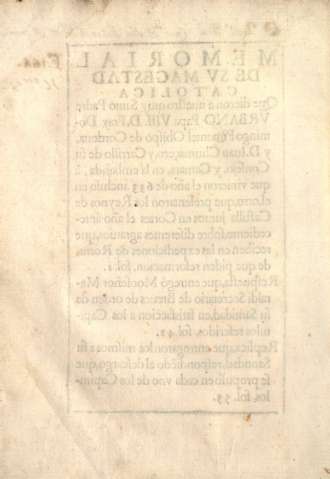 MEMORIAL
DE SV MAGESTAD
CATOLICA
Que dieron a nuestro muy Santo Padre
VRBANO Papa VIII. D. Fray Do-
mingo Pimentel Obispo de Cordoua,
y D. Iuan Chumacero y Carrillo de su
Consejo y Camara, en la embajada, à
que vinieron el año de 633 incluso en
el otro, que presentaron los Reynos de
Castilla juntos en Cortes el año ante-
cedente, sobre diferentes agrauios, que
reciben en las expediciones de Roma,
de que piden reformacion. fol. 1.
Respuesta, que entregò Monseñor Ma-
raldi Secretario de Breues de orden de
su Santidad, en satisfacion a los Capi-
tulos referidos. fol. 42.
Replica, que entregaron los mismos a su
Santidad, respondiendo al descargo, que
se propuso en cada vno de los Capitu-
los. fol. 55.